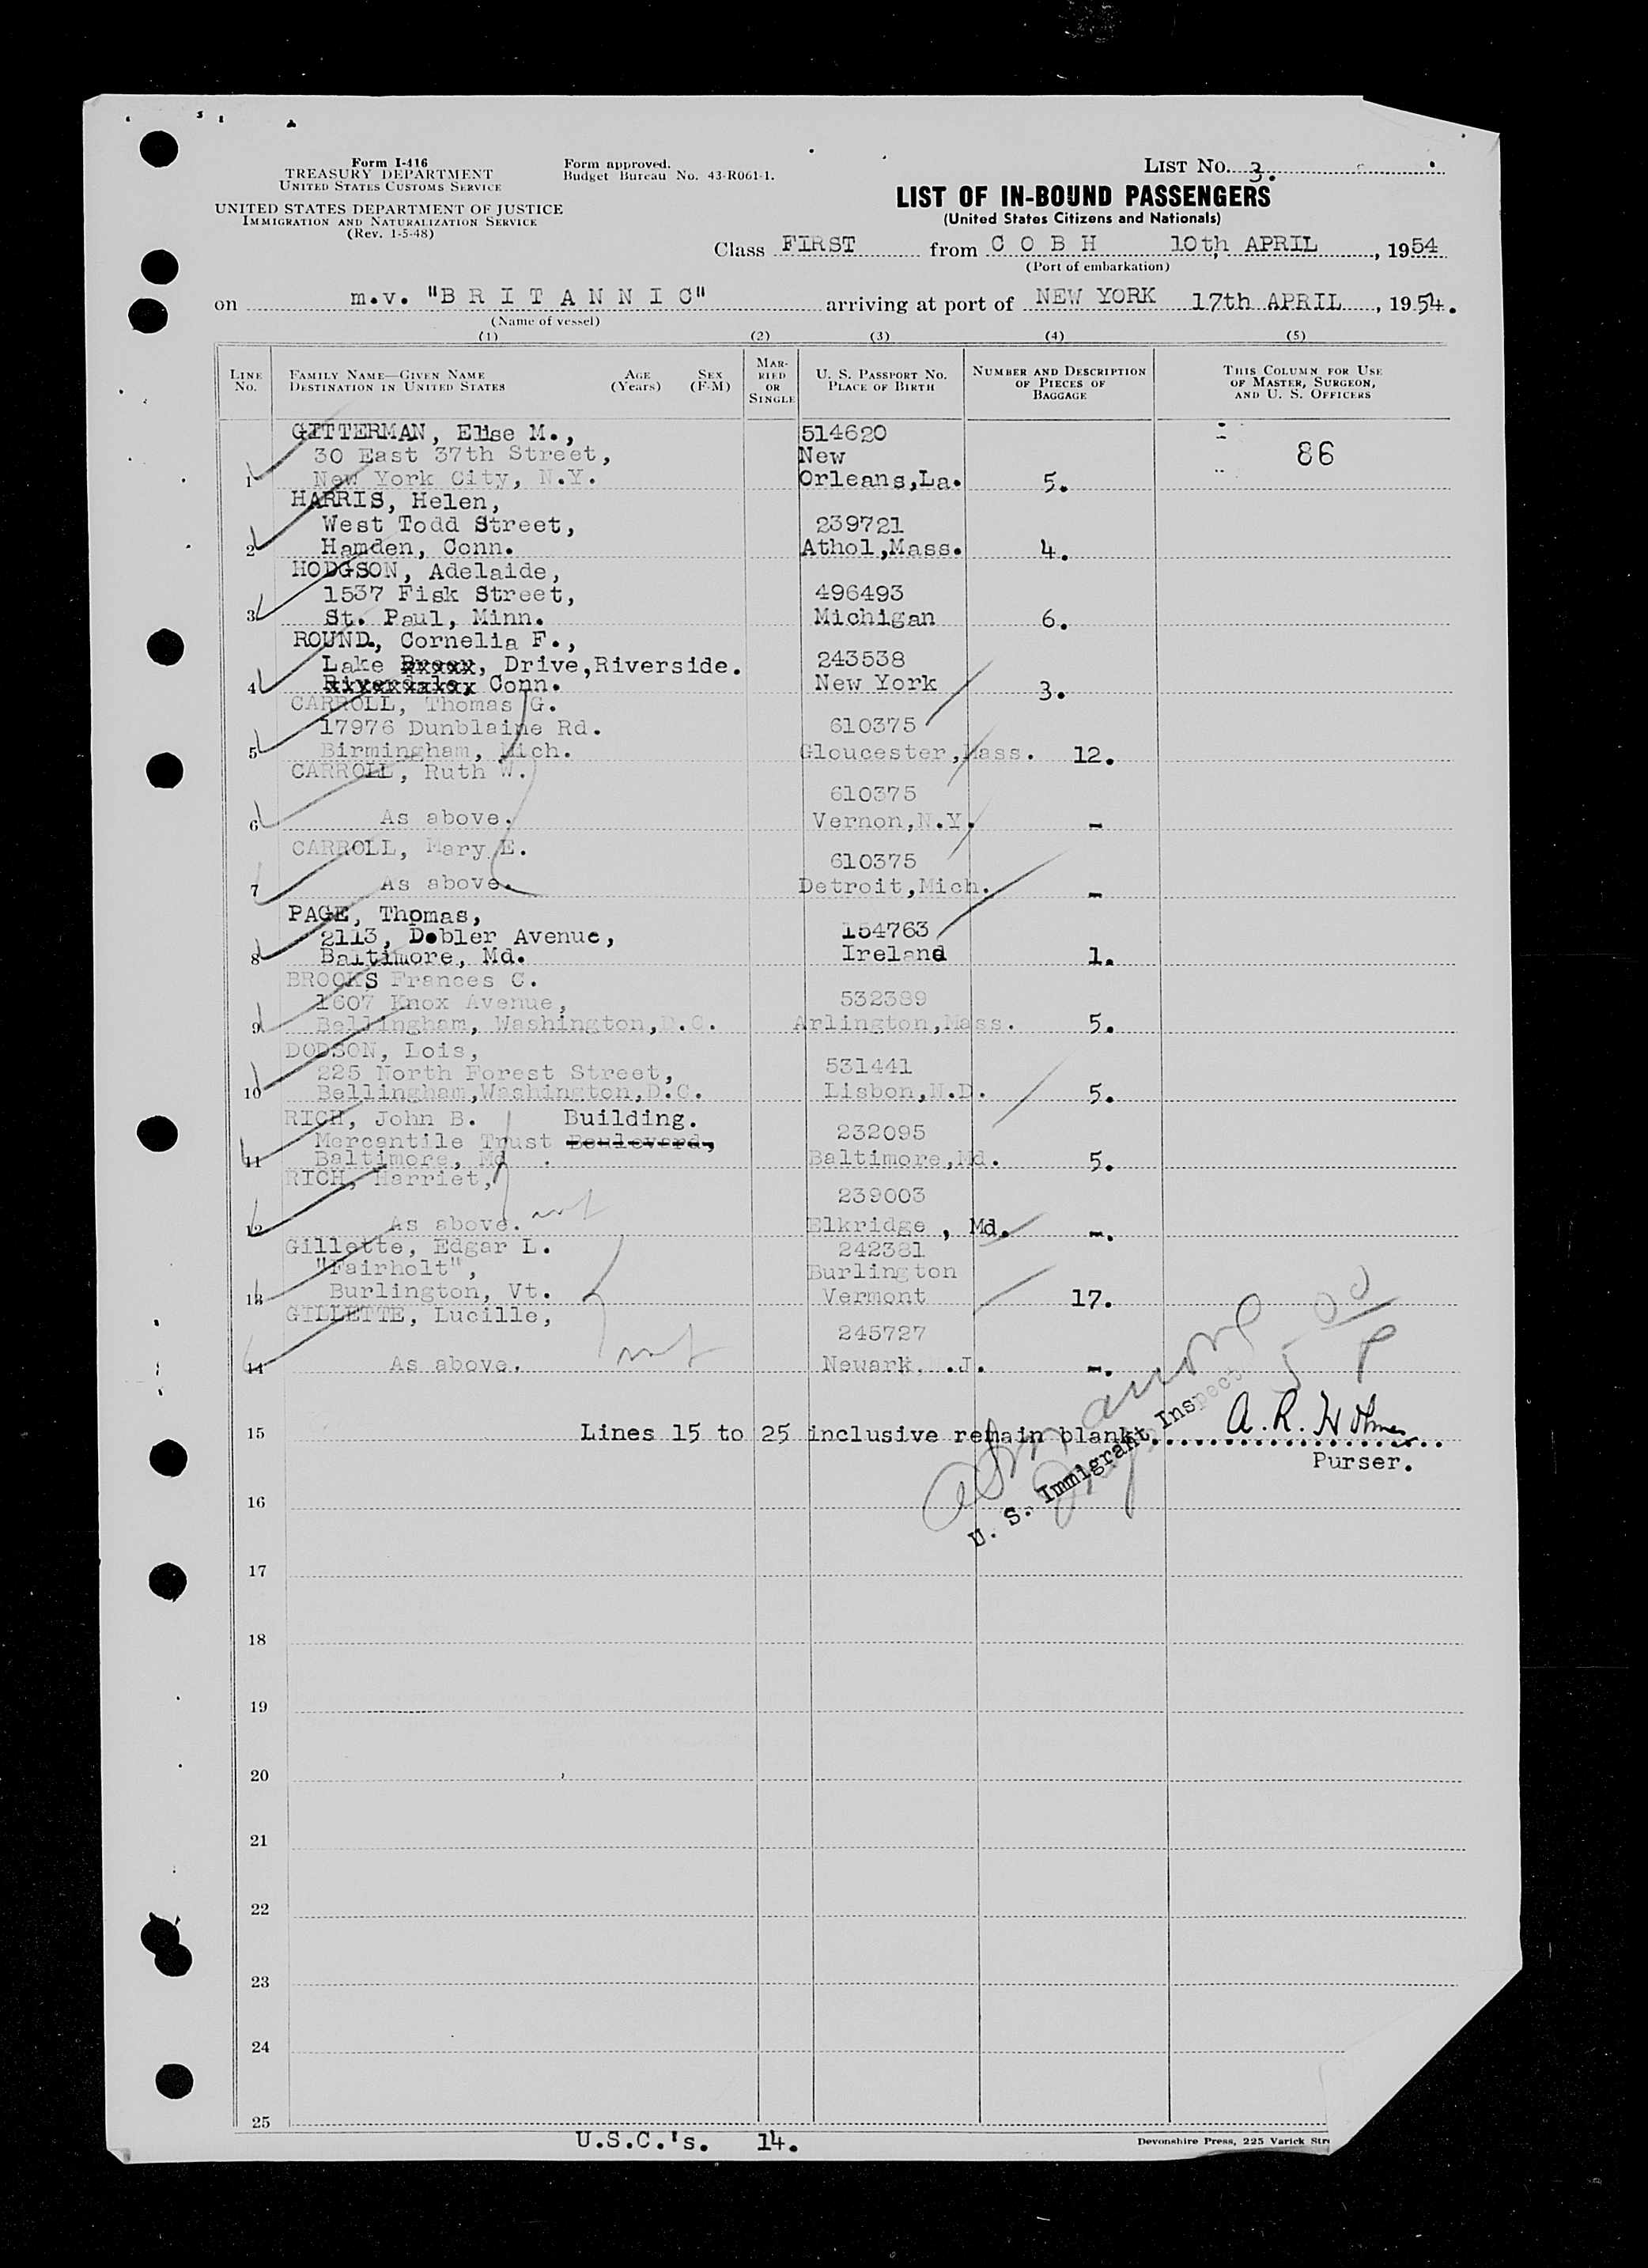 Form I-416
TREASURY DEPARTMENT
UNITED STATES CUSTOMS SERVICE
UNITED STATES DEPARTMENT OF JUSTICE
IMMIGRATION AND NATURALIZATION SERVICE
(Rev. 1-5-48)
Form approved.
Budget Bureau No. 43-R061-1.
LIST NO. 3.
LIST OF IN-BOUND PASSENGERS
(United States Citizens and Nationals)
Class FIRST from C O B H 10th, APRIL, 1954
(Port of embarkation)
on m.v. "B R I T A N N I C" arriving at port of NEW YORK 17th APRIL, 1954.
(Name of vessel)
(1) (2) (3) (4) (5)
LINE NO.
FAMILY NAME—GIVEN NAME
DESTINATION IN UNITED STATES
AGE (Years)
SEX (F-M)
MARRIED OR SINGLE
U. S. PASSPORT NO.
PLACE OF BIRTH
NUMBER AND DESCRIPTION OF PIECES OF BAGGAGE
THIS COLUMN FOR USE OF MASTER, SURGEON, AND U. S. OFFICERS
GITTERMAN, Elise M., 514620
30 East 37th Street, New 86
1 New York City, N.Y. Orleans,La. 5.
HARRIS, Helen,
West Todd Street, 239721
2 Hamden, Conn. Athol,Mass. 4.
HODGSON, Adelaide,
1537 Fisk Street, 496493
3 St. Paul, Minn. Michigan 6.
ROUND., Cornelia F.,
Lake , Drive,Riverside. 243538
4 Conn. New York 3.
CARROLL, Thomas G.
17976 Dunblaine Rd. 610375
5 Birmingham, Mich. Gloucester,Mass. 12.
CARROLL, Ruth W.
610375
6 As above. Vernon,N.Y. -
CARROLL, Mary E.
610375
7 As above. Detroit,Mich. -
PAGE, Thomas,
2113, Dobler Avenue, 154763
8 Baltimore, Md. Ireland 1.
BROOKS Frances C.
1607 Knox Avenue, 532389
9 Bellingham, Washington,D.C. Arlington,Mass. 5.
DODSON, Lois,
225 North Forest Street, 531441
10 Bellingham,Washington,D.C. Lisbon,N.D. 5.
RICH, John B. Building.
Mercantile Trust Boulevard, 232095
11 Baltimore, Md. Baltimore,Md. 5.
RICH, Harriet,
239003
12 As above. Elkridge , Md. -.
Gillette, Edgar L. 242381
"Fairholt", Burlington
13 Burlington, Vt. Vermont 17.
GILLETTE, Lucille,
245727
14 As above. Newark, .J. -.
15 Lines 15 to 25 inclusive remain blank. A. R. Holmes
Purser.
U. S. Immigrant Inspector
16
17
18
19
20
21
22
23
24
25
U.S.C.'s. 14.
Devonshire Press, 225 Varick Str